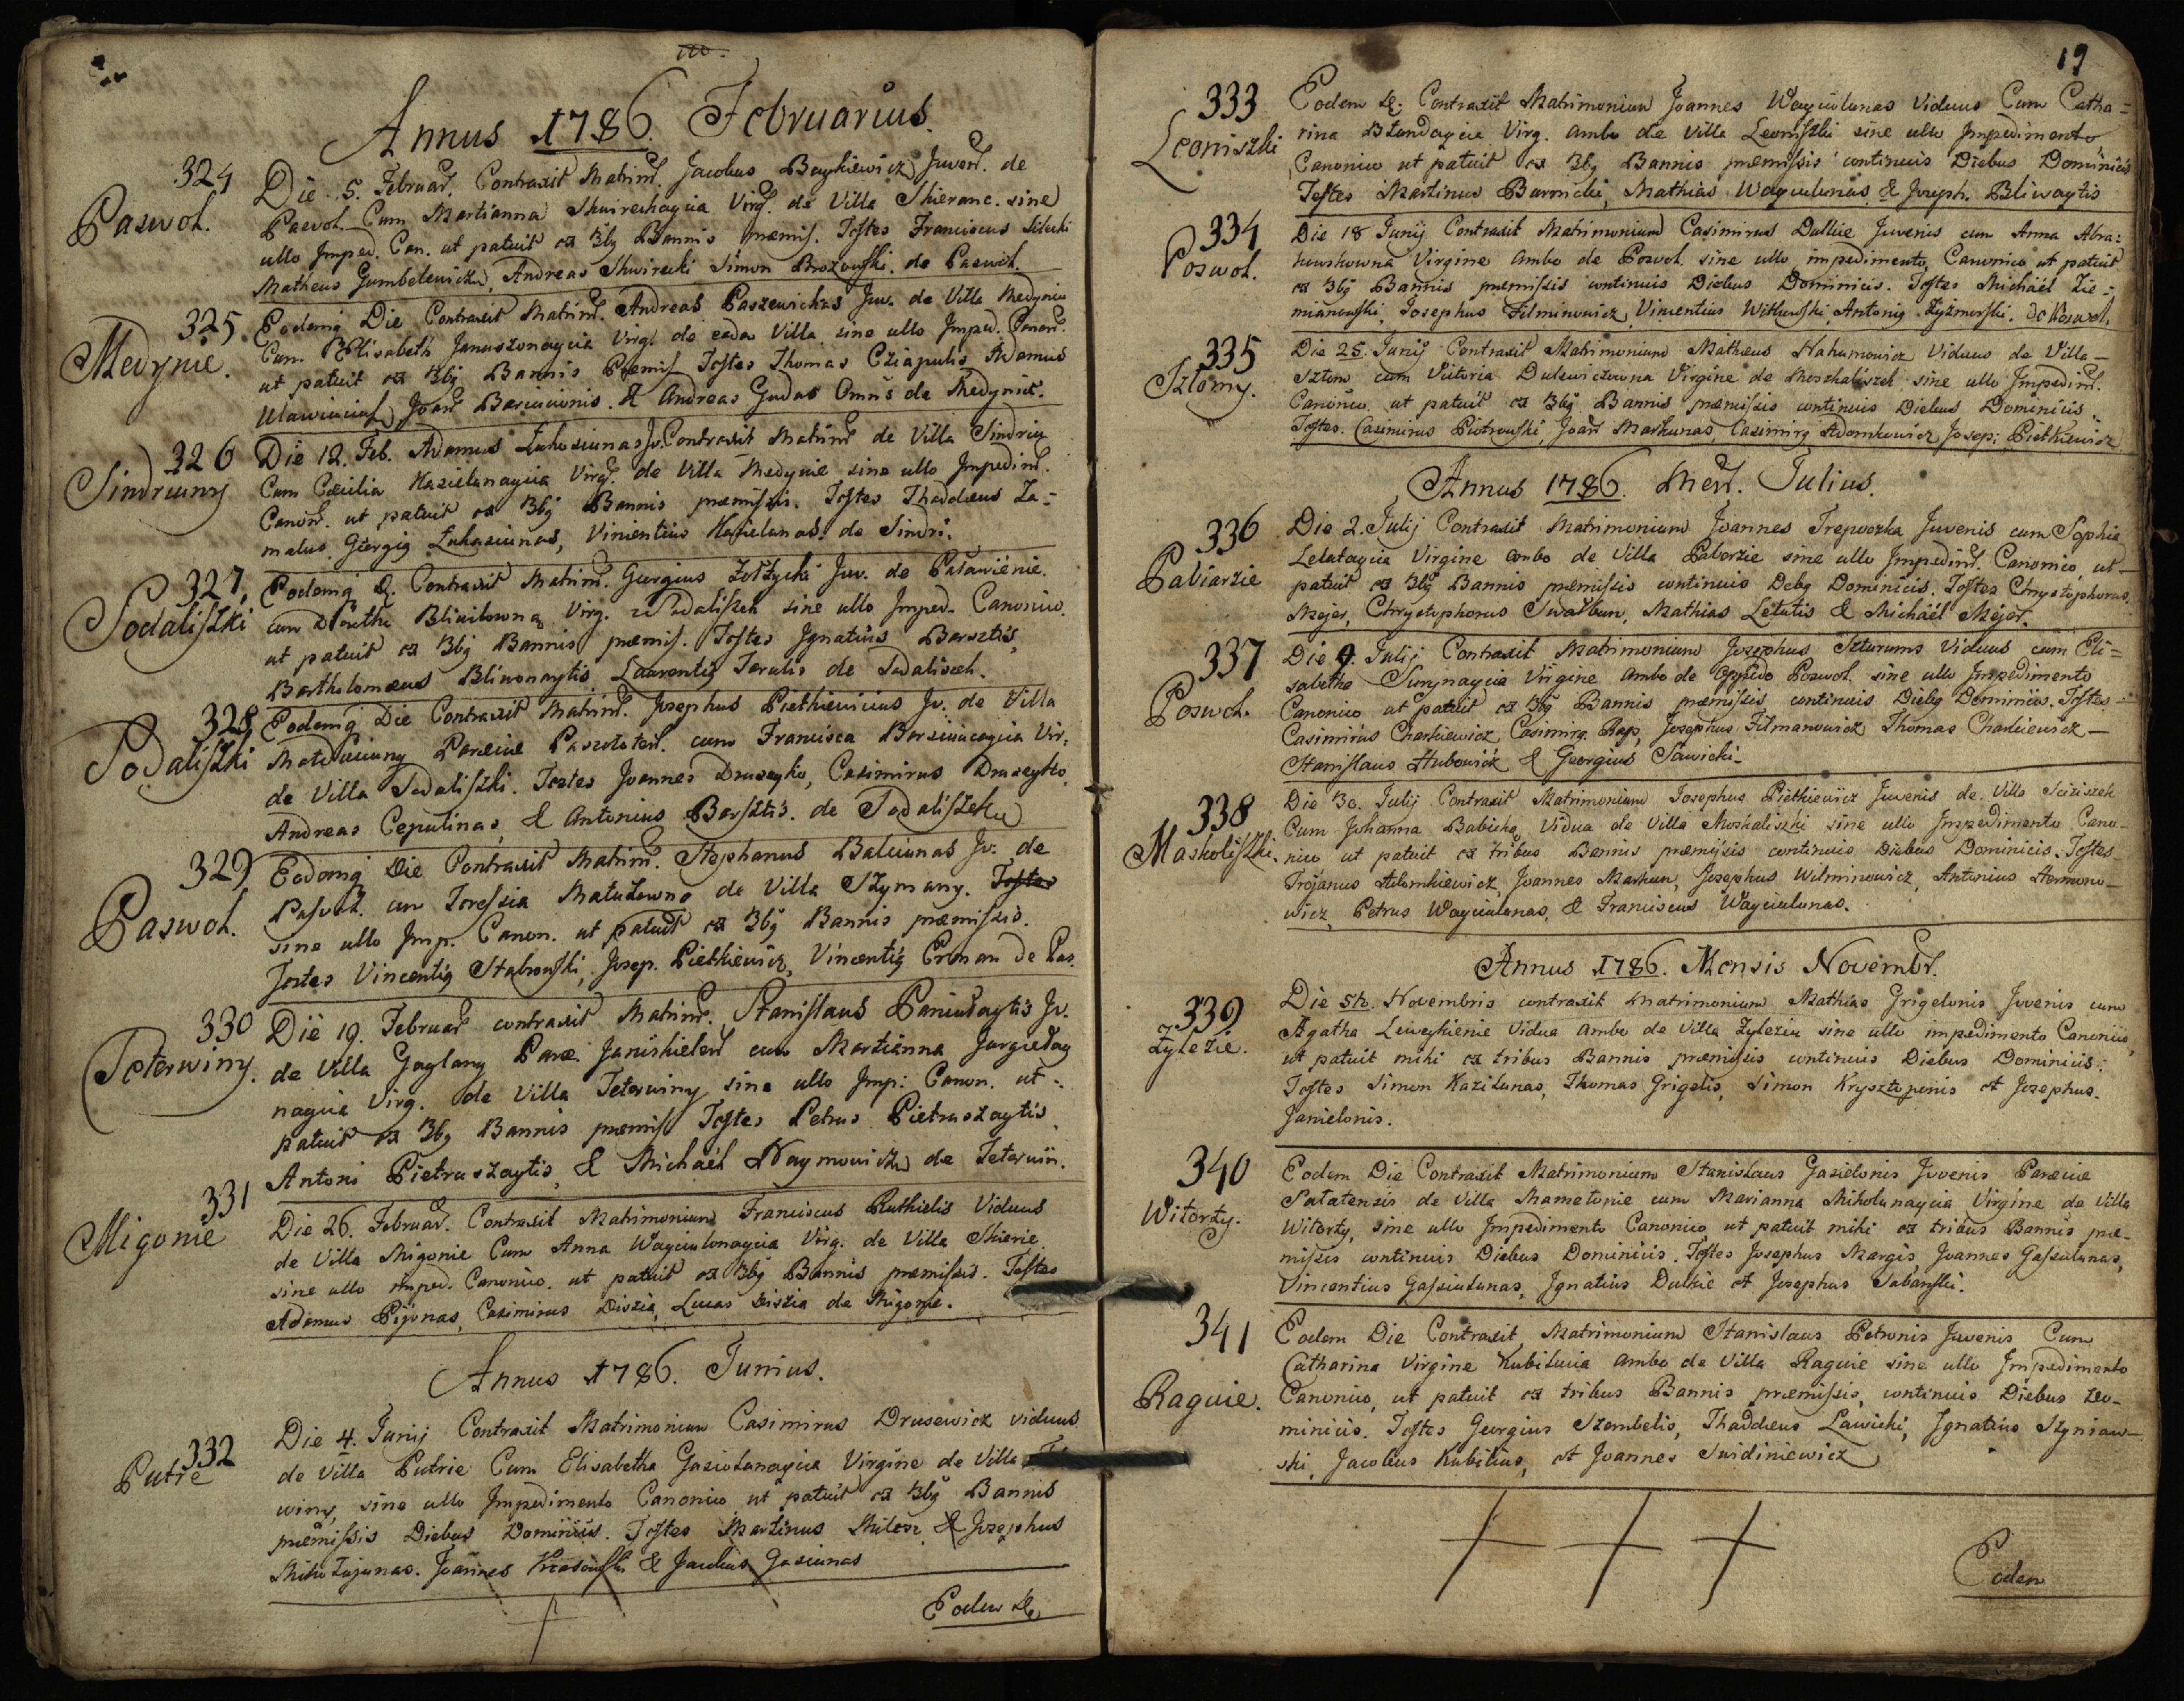 Annus 1786. Februarius.
324
Paswol.
Die 5. Februar. Contraxit Matrim. Jacobus Baykiewicz Juven. de
Paswol. Cum Martianna Skwireckaycia Virg. de Villa Skieranc. sine
ullo Imped. Can. ut patuit ex 3bg Bannis præmis. Testes Franciscus
Matheus Gumbelewicz, Andreas Skwirecki Simon Brozowski. de Paswol.
325
Medynie.
Eodemq Die Contraxit Matrim. Andreas Paszewickas Juv. de Villa Medynie
Cum Elisabeth Januszonaycia Virg. de eadem Villa sine ullo Imped. Canon.
ut patuit ex 3bg Bannis Præmis. Testes Thomas Cziapulis Adamus
Joan Andreas Gudas Omnes de Medynie.
326
Sindriuny
Die 12. Feb. Adamus Lukosiunas Jv. Contraxit Matrim de Villa Sindriu
Cum Cæcilia Kazielanaycia Virg. de Villa Medynie sine ullo Impedim.
Canon. ut patuit ex 3bg Bannis præmissis. Testes Thaddæus Za-
matus Giergig Lukasiunas, Vincentius Kazielanas. de Sindri.
327
Sodaliszki
Eodemq D. Contraxit Matrim. Georgius Zołżycki Juv. de Pasawienie.
cum Dorothe Bliwikowna Virg. z Sodaliszek sine ullo Imped. Canonico.
ut patuit ex 3bg Bannis præmis. Testes Ignatius Barsztis,
Bartholomæus Bliwonaytis Laurentig Jerulis de Sodaliszek.
328
Sodaliszki
Eodemq Die Contraxit Matrim. Josephus Pietkiewicius Jv. de Villa
Paræciæ cum Francisca Vir-
de Villa Sodaliszki. Testes Joannes Druseyko, Casimirus Druseyko
Andreas Cepulinas, & Antonius Barsztis. de Sodaliszek
329
Paswol.
Eodemq Die Contraxit Matrim. Stephanus Balciunas Jv. de
Paswol. cum Teressia Matulowna de Villa Szymany. Testes
sine ullo Imp. Canon. ut patuit ex 3bg Bannis præmissis.
Testes Vincentig Stabrowski, Josep. Pietkiewicz, Vincentig Erman de Pas.
330
Teterwiny.
Die 19. Februar contraxit Matrim. Stanislaus Paniudaytis Jv.
de Villa Gaylany Paræ. Janiskielen cum Martianna Jurgieday
naycia Virg. de Villa Teterwiny sine ullo Imp: Canon. ut
patuit ex 3bg Bannis præmis Testes Petrus Pietraszaytis,
Antoni Pietraszaytis, & Michaël Naymowicz de Teterwin.
331
Migonie
Die 26. Februar. Contraxit Matrimonium Franciscus Rutkielis Viduus
de Villa Migonie Cum Anna Wayciulonaycia Virg. de Villa Skierie
sine ullo imped. Canonico. ut patuit ex 3bg Bannis præmissis. Testes
Adamus Pijunas, Casimirus Diszia, Lucas Diszia de Migonie.
Annus 1786. Junius.
332
Putre
Die 4. Junij Contraxit Matrimonium Casimirus Drusewicz viduus
de Villa Putrie Cum Elisabetha Gasiulanaycia Virgine de Villa
winy, sine ullo Impedimento Canonico ut patuit ex 3bg Bannis
præmissis Diebus Dominicis. Testes Martinus Milosz & Josephus
Mikołajunas. Joannes Krasowski & Jacobus Gasiunas
Eodem D.
19
333
Leoniszki
Eodem D. Contraxit Matrimonium Joannes Wayciulunas Viduus Cum Catha=
rina Blendaycia Virg. ambo de Villa Leoniszki sine ullo Impedimento
Canonico ut patuit ex 3bg Bannis præmissis continuis Diebus Dominicis
Testes Martinus Baronicki, Mathias Wayculunas & Joseph. Bliwaytis
334
Poswol.
Die 18 Junij Contraxit Matrimonium Casimirus Dulkie Juvenis cum Anna Abra=
kunskowna Virgine ambo de Poswol. sine ullo impedimento Canonico ut patuit
ex 3bg Bannis præmissis continuis Diebus Dominicis. Testes Michaël Zie=
mianowski, Josephus Filminowicz, Vincentius Witkowski, Antonig Zyżmorski. de Poswol.
335
Szlomy.
Die 25. Junij Contraxit Matrimonium Mathæus Nahumowicz Viduus de Villa
Szlom cum Victoria Dulewiczowna Virgine de Moskaliszek sine ullo Impedim.
Canonico ut patuit ex 3bg Bannis præmissis continuis Diebus Dominicis.
Testes. Casimirus Piotrowski, Joan Markunas, Casimirg Adomkowicz Josep: Pietkiewicz
Annus 1786. Men. Julius.
336
Pabiarzie
Die 2. Julij Contraxit Matrimonium Joannes Trepoczka Juvenis cum Sophia
Letataycia Virgine ambo de Villa Paberzie sine ullo Impedim. Canonico, ut
patuit ex 3bg Bannis præmissis continuis Debg Dominicis. Testes Chrystophorus
Mejer, Chrystophorus Swałbun, Mathias Letatis & Michaël Mejer.
337
Poswol.
Die 9. Julij Contraxit Matrimonium Josephus Szturums Viduus cum Eli=
sabetha Surynaycia Virgine ambo de oppido Poswol. sine ullo Impedimento
Canonico ut patuit ex 3bg Bannis præmissis continuis Diebg Dominicis. Testes
Casimirus Charkiewicz, Casimirg. Rap, Josephus Filmanowicz Thomas Charkiewicz
Stanislaus Hubowicz & Georgius Sawicki.
338
Maskoliszki.
Die 30. Julij Contraxit Matrimonium Josephus Pietkiewicz Juvenis de Villa Sciziszek
Cum Johanna Babicka Vidua de Villa Moskaliszki sine ullo Impedimento Cano-
nico ut patuit ex tribus Bannis præmissis continuis Diebus Dominicis. Testes
Trojanus Adomkiewicz, Joannes Markun, Josephus Wilminowicz, Antonius Hermono-
wicz, Petrus Wayciulunas, & Franciscus Wayciulunas.
Annus 1786. Mensis Novembr.
339
Zyleżie.
Die 5ta Novembris contraxit matrimonium Mathias Grigelonis Juvenis cum
Agatha Leweykienie Vidua ambo de Villa Zyleziu sine ullo impedimento Canonico,
ut patuit mihi ex tribus Bannis præmissis continuis Diebus Dominicis:
Testes Simon Kazilunas, Thomas Grigelis, Simon Krysztopenis et Josephus.
Janielonis.
340
Witorty.
Eodem Die Contraxit Matrimonium Stanislaus Gasielonis Juvenis Paræciæ
Salatensis de Villa Mametonie cum Marianna Mikolunaycia Virgine de Villa
Witorty, sine ullo Impedimento Canonico ut patuit mihi ex tribus Bannis præ-
missis continuis Diebus Dominicis. Testes Josephus Margis, Joannes Gassiulunas,
Vincentius Gassiulunas, Ignatius Dulkie et Josephus Sabanski.
341
Raguie.
Eodem Die Contraxit Matrimonium Stanislaus Petronis Juvenis Cum
Catharina Virgine Kubiluicia ambo de Villa Raguie sine ullo Impedimento
Canonico, ut patuit ex tribus Bannis præmissis, continuis Diebus Do-
minicis. Testes Georgius Szembelis, Thaddæus Lawicki, Ignatius Szyniaw-
ski, Jacobus Kubilius, et Joannes Swidiniewicz
Eodem